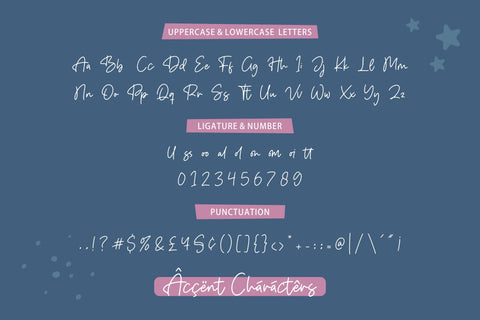 UPPERCASE & LOWERCASE LETTERS
Aa Bb Cc Dd Ee Ff Gg Hh Ii Jj Kk Ll Mm
Nn Oo Pp Qq Rr Ss Tt Uu Vv Ww Xx Yy Zz
LIGATURE & NUMBER
ll ss oo al d on om oi tt
0123456789
PUNCTUATION
..!?#$%&£¥§¢()[]{}<>*+-::=@|/\´¨¡
Âççënt Cháráctêrs